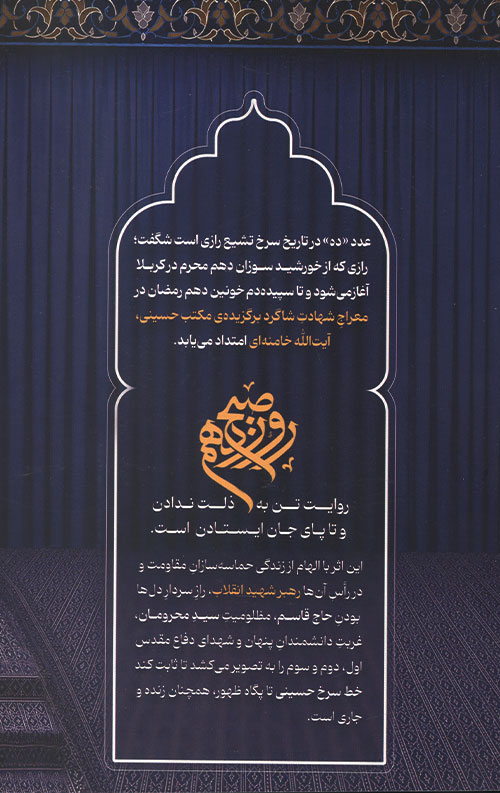 عدد «ده» در تاریخ سرخ تشیع رازی است شگفت؛
رازی که از خورشید سوزان دهم محرم در کربلا
آغاز می‌شود و تا سپیده‌دم خونین دهم رمضان در
معراجِ شهادتِ شاگرد برگزیده‌ی مکتب حسینی،
آیت‌الله خامنه‌ای امتداد می‌یابد.
صبح
روز دهم
روایت تن به ذلت ندادن
و تا پای جان ایستادن است.
این اثر با الهام از زندگی حماسه‌سازانِ مقاومت و
در رأس آن‌ها رهبر شهید انقلاب، رازِ سردارِ دل‌ها
بودن حاج قاسم، مظلومیتِ سیدِ محرومان،
غربتِ دانشمندانِ پنهان و شهدای دفاع مقدس
اول، دوم و سوم را به تصویر می‌کشد تا ثابت کند
خط سرخ حسینی تا پگاه ظهور، همچنان زنده و
جاری است.